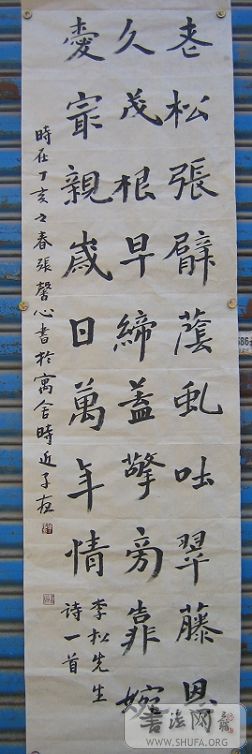 老松張臂蔭虬吐翠藤恩
久茂根早締蓋擎旁靠
愛冣親歲日萬年情
李松先生
詩一首
時在丁亥之春張馨心書於寓舍時近子夜
书法网
WWW.SHUFA.ORG